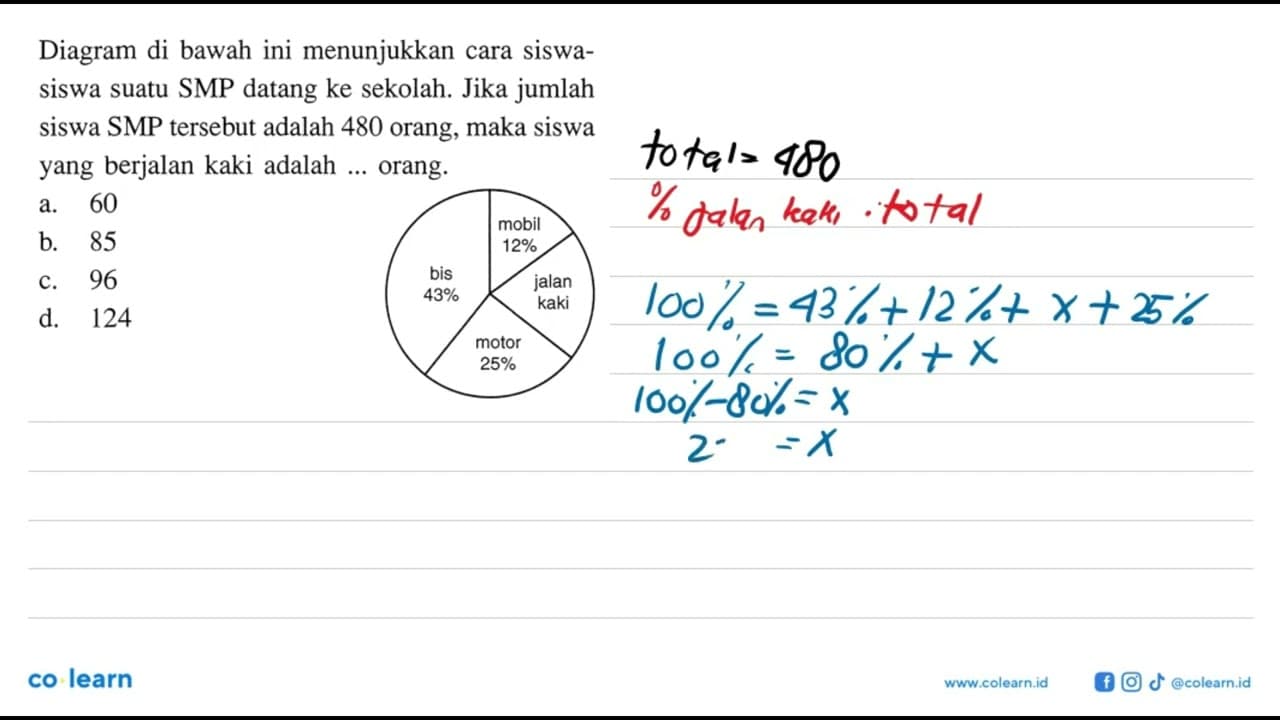 Diagram di bawah ini menunjukkan cara siswa-
siswa suatu SMP datang ke sekolah. Jika jumlah
siswa SMP tersebut adalah 480 orang, maka siswa
yang berjalan kaki adalah ... orang.
a. 60
b. 85
c. 96
d. 124
mobil
12%
jalan
kaki
bis
43%
motor
25%
total = 480
% jalan kaki . total
100% = 43% + 12% + x + 25%
100% = 80% + x
100% - 80% = x
2 = x
co·learn
www.colearn.id
@colearn.id